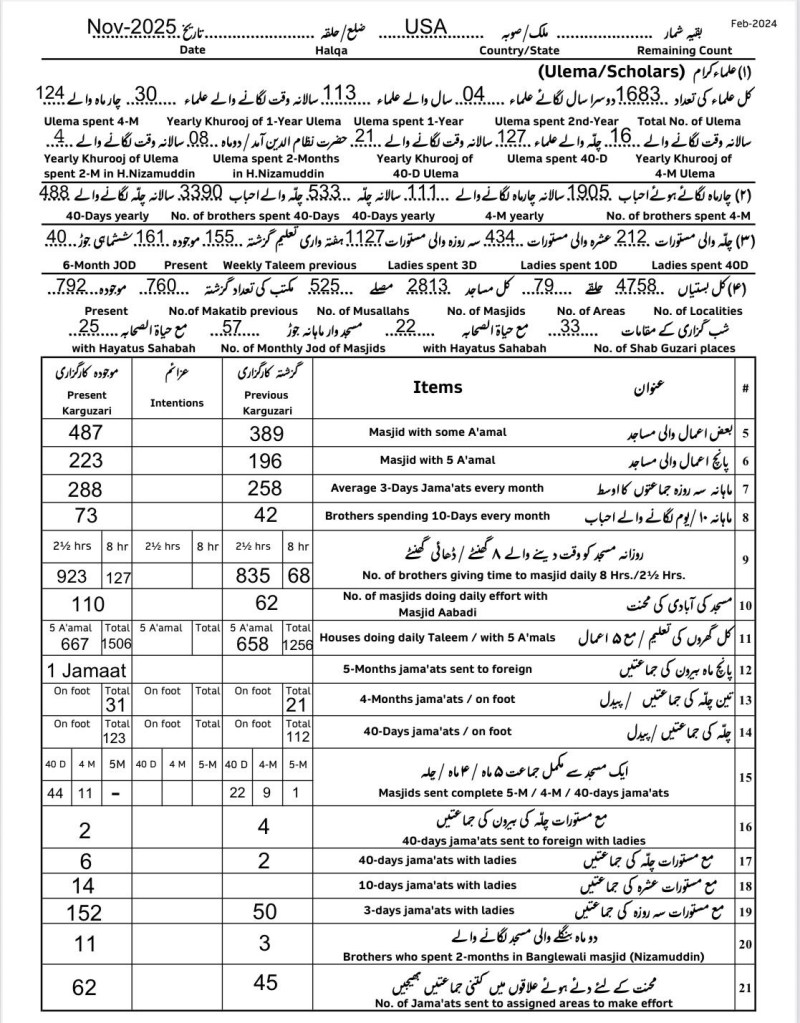 Feb-2024
بقیہ شمار ........................ ملک/صوبہ ...USA... ضلع/حلقہ ........................ تاریخ Nov-2025
Date Halqa Country/State Remaining Count
(۱) علماء کرام (Ulema/Scholars)
کل علماء کی تعداد 1683 دوسرا سال لگائے علماء 04 سال والے علماء 113 سالانہ وقت لگانے والے علماء 30 چار ماہ والے 124
Ulema spent 4-M Yearly Khurooj of 1-Year Ulema Ulema spent 1-Year Ulema spent 2nd-Year Total No. of Ulema
سالانہ وقت لگانے والے 16 چلّہ والے علماء 127 سالانہ وقت لگانے والے 21 حضرت نظام الدین آمد/دو ماہ 08 سالانہ وقت لگانے والے 4
Yearly Khurooj of Ulema Ulema spent 2-Months Yearly Khurooj of Ulema spent 40-D Yearly Khurooj of
spent 2-M in H.Nizamuddin in H.Nizamuddin 40-D Ulema 4-M Ulema
(۲) چار ماہ لگائے ہوئے احباب 1905 سالانہ چار ماہ لگانے والے 111 سالانہ چلّہ 533 چلّہ والے احباب 3390 سالانہ چلّہ لگانے والے 488
40-Days yearly No. of brothers spent 40-Days 40-Days yearly 4-M yearly No. of brothers spent 4-M
(۳) چلّہ والی مستورات 212 عشرہ والی مستورات 434 سہ روزہ والی مستورات 1127 ہفتہ واری تعلیم گزشتہ 155 موجودہ 161 ششماہی جوڑ 40
6-Month JOD Present Weekly Taleem previous Ladies spent 3D Ladies spent 10D Ladies spent 40D
(۴) کل بستیاں 4758 حلقے 79 کل مساجد 2813 مصلے 525 مکتب کی تعداد گزشتہ 760 موجودہ 792
Present No.of Makatib previous No. of Musallahs No. of Masjids No. of Areas No. of Localities
شب گزاری کے مقامات 33 مع حیاۃ الصحابہ 22 مسجد وار ماہانہ جوڑ 57 مع حیاۃ الصحابہ 25
with Hayatus Sahabah No. of Monthly Jod of Masjids with Hayatus Sahabah No. of Shab Guzari places
موجودہ کارگزاری عزائم گزشتہ کارگزاری
Present Karguzari Intentions Previous Karguzari Items عنوان #
487 389 Masjid with some A'amal بعض اعمال والی مساجد 5
223 196 Masjid with 5 A'amal پانچ اعمال والی مساجد 6
288 258 Average 3-Days Jama'ats every month ماہانہ سہ روزہ جماعتوں کا اوسط 7
73 42 Brothers spending 10-Days every month ماہانہ ۱۰/یوم لگانے والے احباب 8
2½ hrs 8 hr 2½ hrs 8 hr 2½ hrs 8 hr روزانہ مسجد کو وقت دینے والے ۸ گھنٹے / ڈھائی گھنٹے 9
923 127 835 68 No. of brothers giving time to masjid daily 8 Hrs./2½ Hrs.
110 62 No. of masjids doing daily effort with Masjid Aabadi مسجد کی آبادی کی محنت 10
5 A'amal Total 5 A'amal Total 5 A'amal Total
667 1506 658 1256 Houses doing daily Taleem / with 5 A'mals کل گھروں کی تعلیم / مع ۵ اعمال 11
1 Jamaat 5-Months jama'ats sent to foreign پانچ ماہ بیرون کی جماعتیں 12
On foot Total On foot Total On foot Total
31 21 4-Months jama'ats / on foot تین چلّہ کی جماعتیں / پیدل 13
On foot Total On foot Total On foot Total
123 112 40-Days jama'ats / on foot چلّہ کی جماعتیں / پیدل 14
40 D 4 M 5M 40 D 4 M 5-M 40 D 4-M 5-M ایک مسجد سے مکمل جماعت ۵ ماہ / ۴ ماہ / چلہ 15
44 11 - 22 9 1 Masjids sent complete 5-M / 4-M / 40-days jama'ats
2 4 مع مستورات چلّہ کی بیرون کی جماعتیں 16
40-days jama'ats sent to foreign with ladies
6 2 40-days jama'ats with ladies مع مستورات چلّہ کی جماعتیں 17
14 10-days jama'ats with ladies مع مستورات عشرہ کی جماعتیں 18
152 50 3-days jama'ats with ladies مع مستورات سہ روزہ کی جماعتیں 19
11 3 دو ماہ بنگلے والی مسجد لگانے والے 20
Brothers who spent 2-months in Banglewali masjid (Nizamuddin)
62 45 محنت کے لئے دئے ہوئے علاقوں میں کتنی جماعتیں بھیجیں 21
No. of Jama'ats sent to assigned areas to make effort